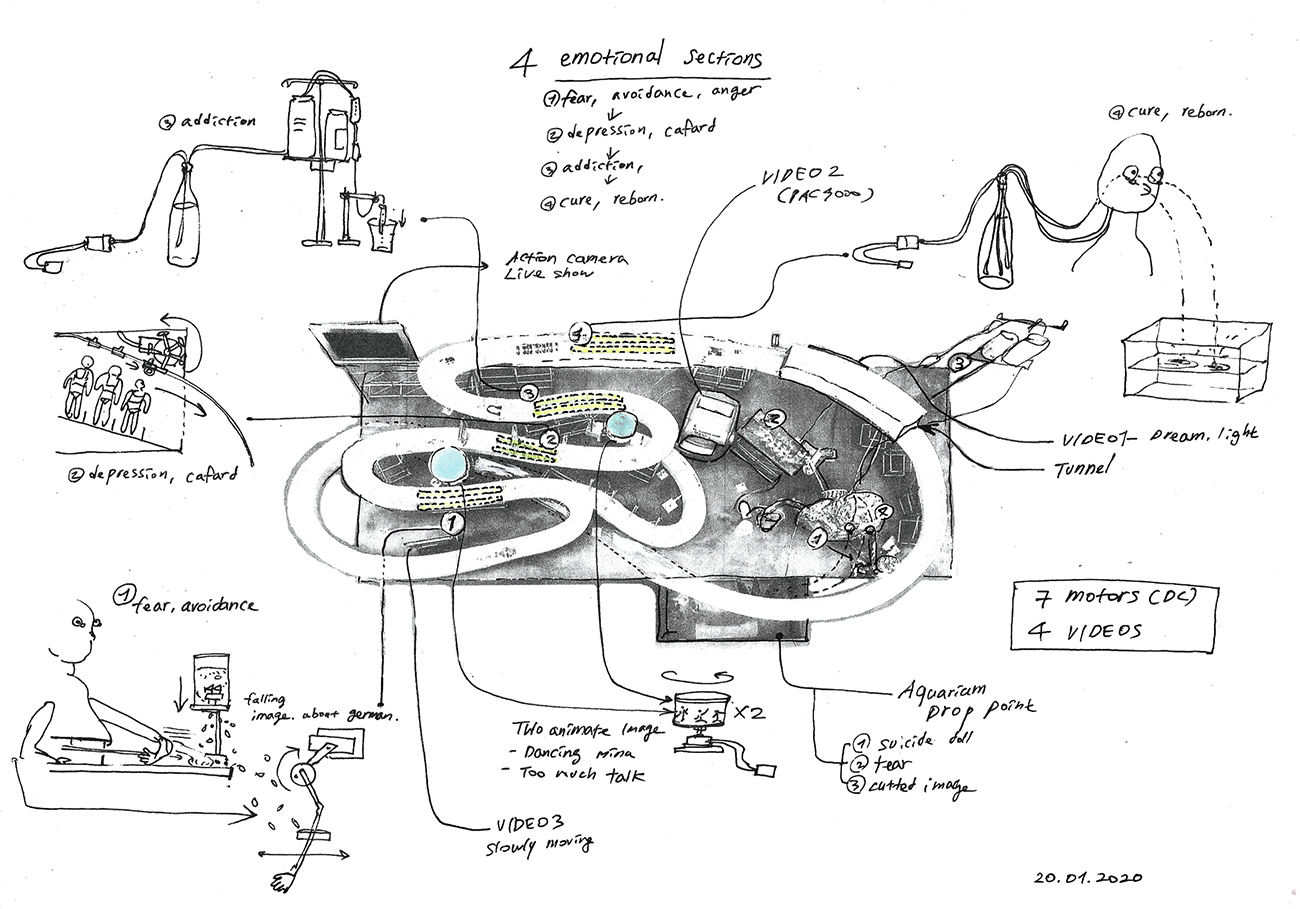 4 emotional sections
① fear, avoidance, anger
② depression, cafard
③ addiction,
④ cure, reborn.
③ addiction
④ cure, reborn.
VIDEO 2
Action camera
Live show
② depression, cafard
4
3
2
1
3
2
2
1
VIDEO1- Dream, light
Tunnel
① fear, avoidance
falling
image. about german.
7 motors (DC)
4 VIDEOS
Two animate image
- Dancing mina
- Too much talk
X2
Aquarium
Drop point
① suicide doll
② fear
③ cutted image
VIDEO3
slowly moving
20.01.2020